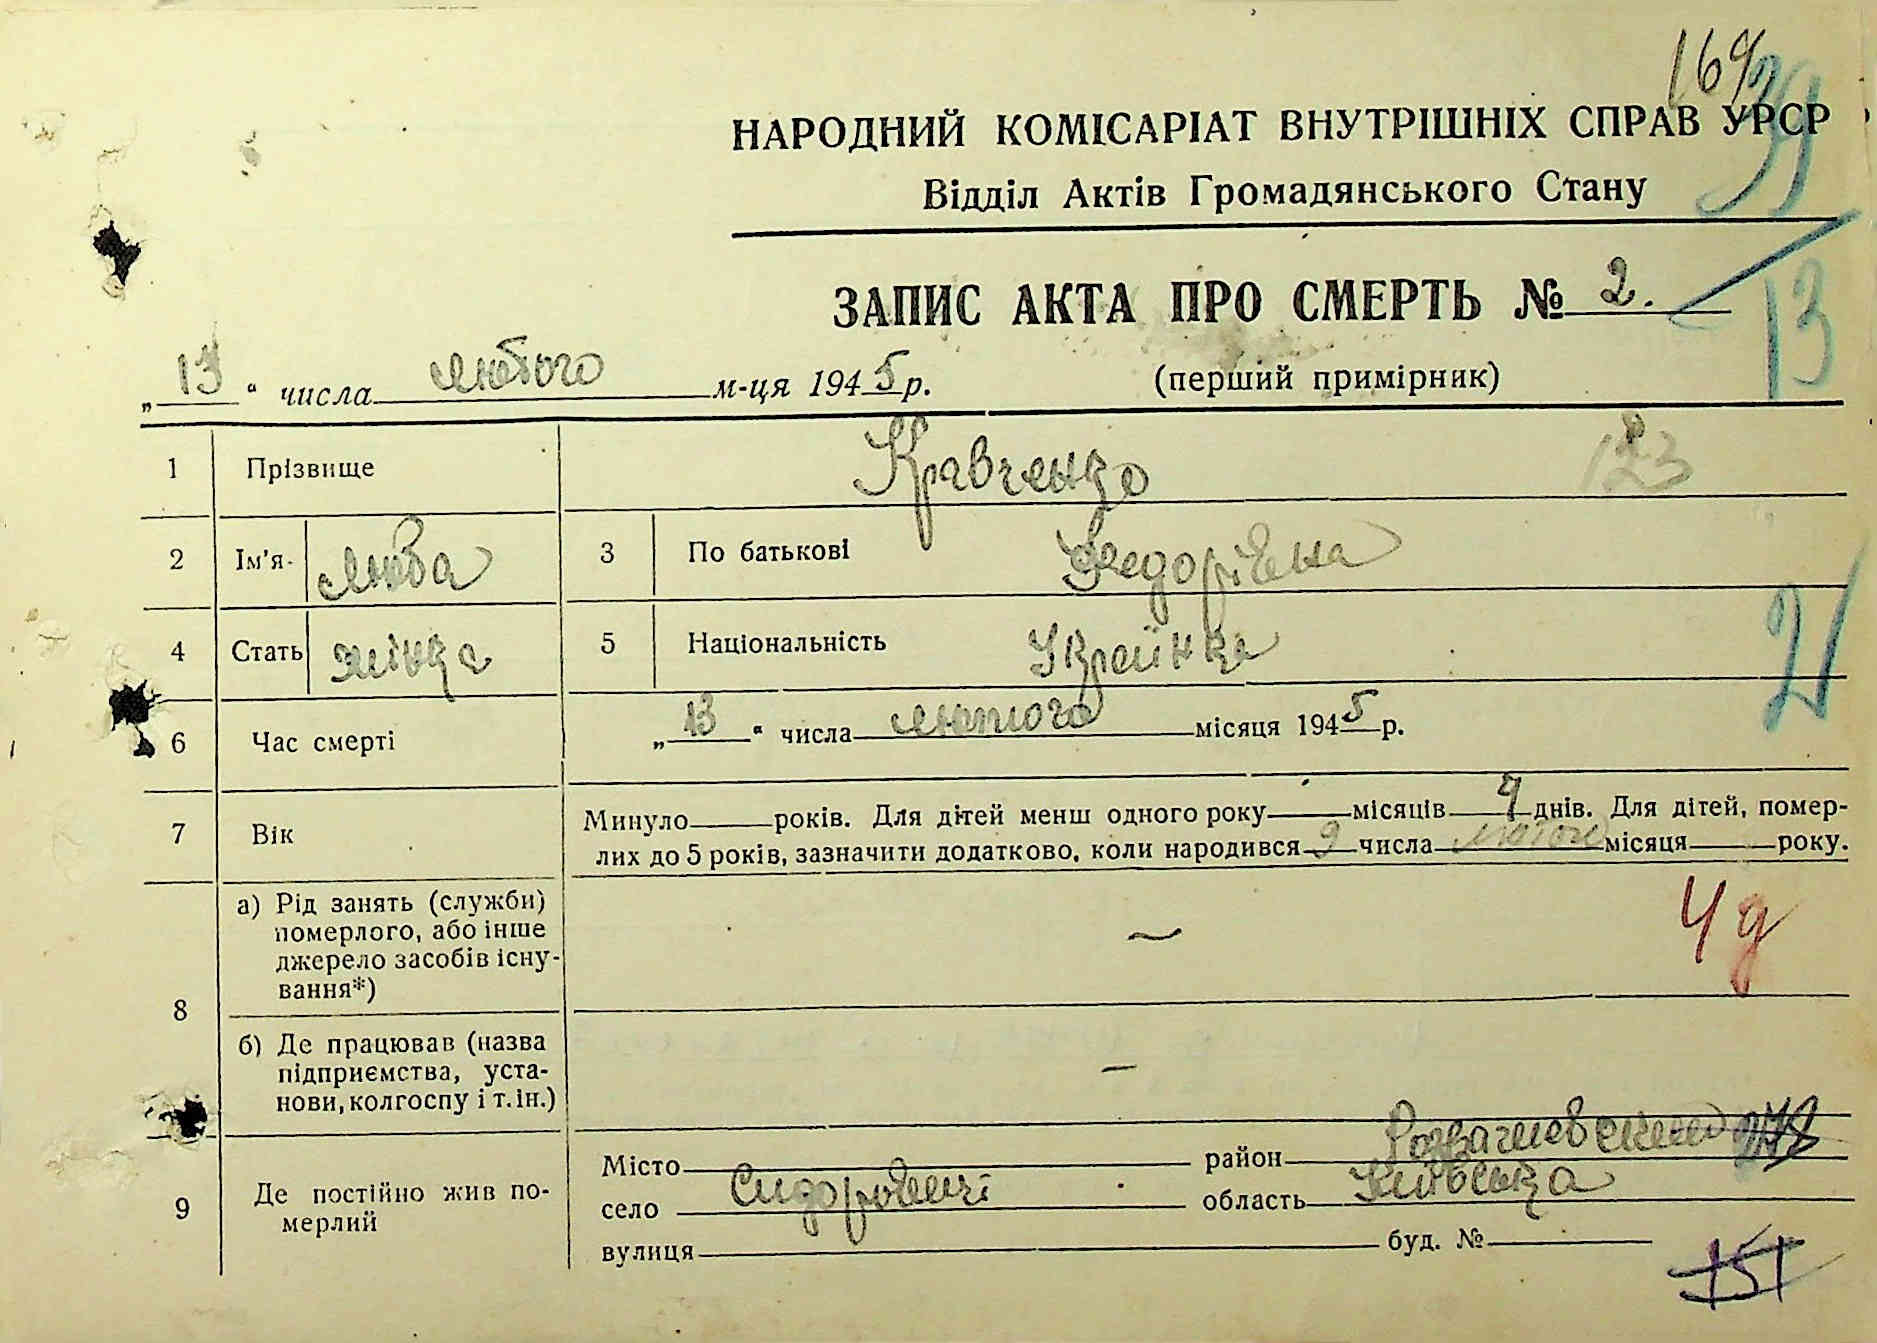 169
39
НАРОДНИЙ КОМІСАРІАТ ВНУТРІШНІХ СПРАВ УРСР
Відділ Актів Громадянського Стану
ЗАПИС АКТА ПРО СМЕРТЬ № 2.
13
„13“ числа лютого м-ця 1945 р. (перший примірник)
1 Прізвище Кравченко 123
2 Ім'я Люба 3 По батькові Федорівна
4 Стать жінка 5 Національність Українка
21
6 Час смерті „13“ числа лютого місяця 1945 р.
7 Вік Минуло років. Для дітей менш одного року місяців 4 днів. Для дітей, помер-
лих до 5 років, зазначити додатково, коли народився 9 числа лютого місяця року.
4 д
8 а) Рід занять (служби) —
померлого, або інше
джерело засобів існу-
вання*)
б) Де працював (назва —
підприємства, уста-
нови, колгоспу і т. ін.)
9 Де постійно жив по-
мерлий
Місто район Розважевский
село Сидоровичі область Київська
вулиця буд. №
151